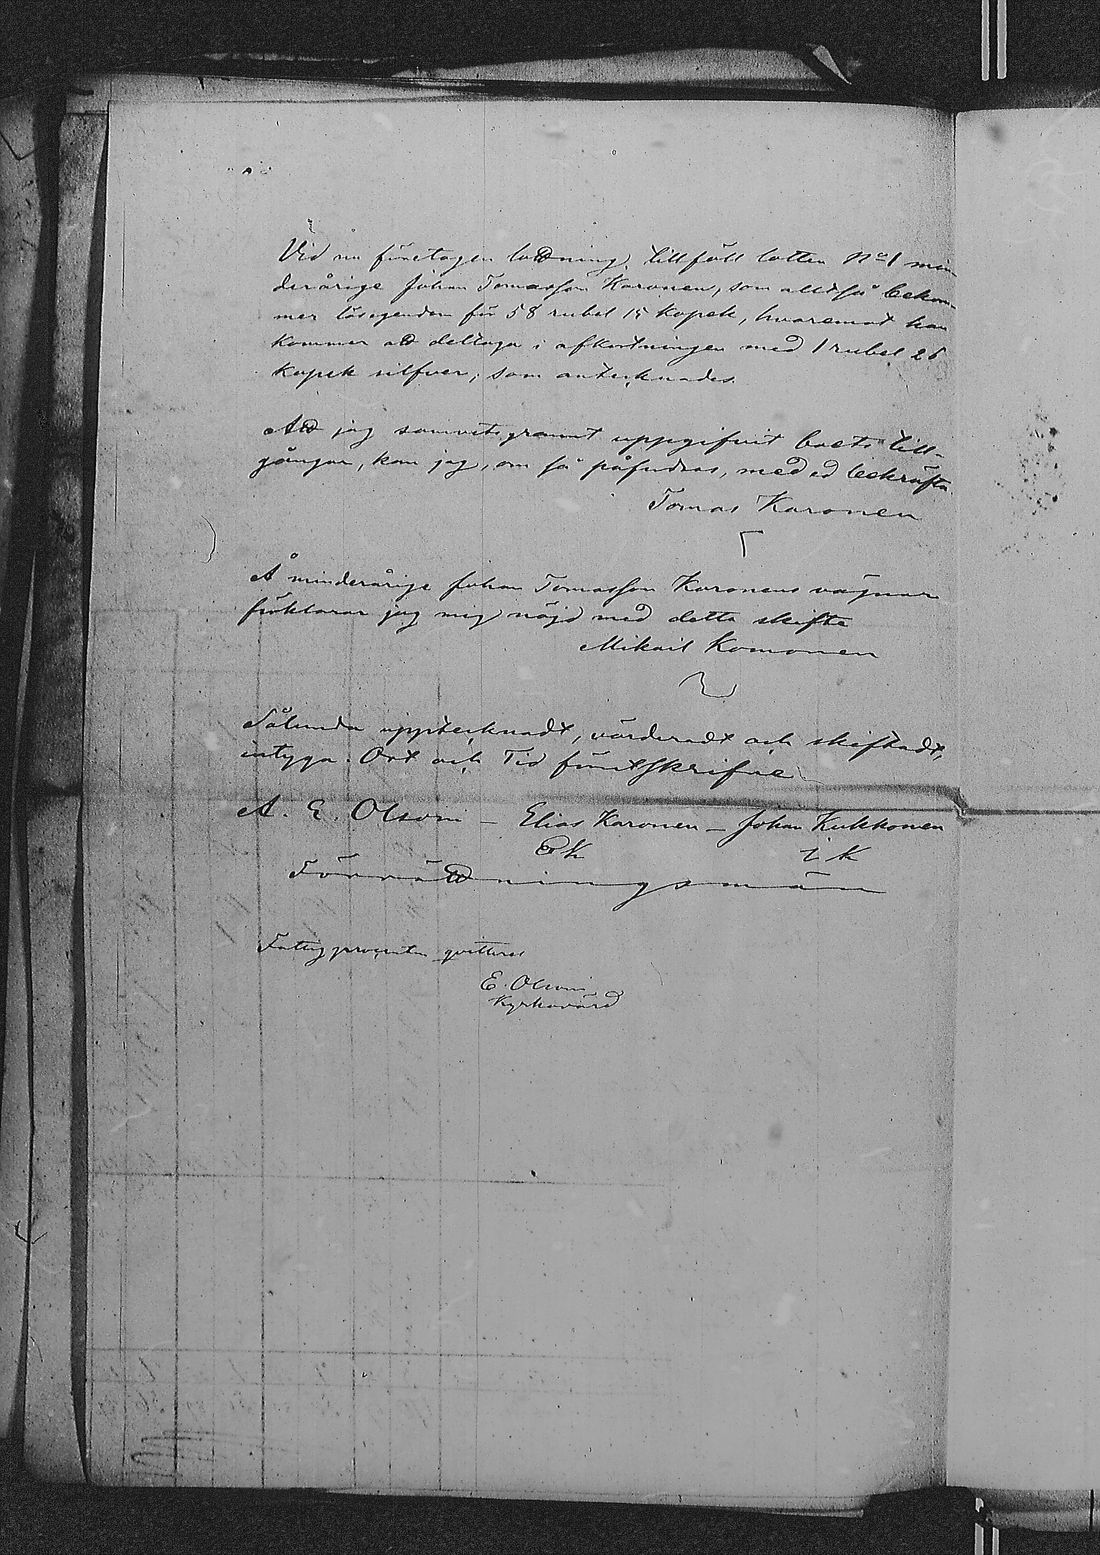 Vid nu företagen lottning, tillföll lotten No 1 min
derårige Johan Tomasson Karonen, som alltså bekom-
mer lösegendom för 58 rubel 15 kopek, hvaremot han
kommer att deltaga i afkortningen med 1 rubel 26
kopek silfver, som antecknades.
Att jag samvetsgrannt uppgifvit boets till-
gångar, kan jag, om så påfordras, med ed bekräfta.
Tomas Karonen
Å minderårige Johan Tomasson Karonens vägnar
förklarar jag mig nöjd med detta skifte
Mikail Komonen
Sålunda upptecknadt, värderadt och skiftadt,
intyga. Ort och Tid förutskrifne
A. E. Olsoni – Elias Karonen – Johan Kukkonen
EK IK
Förrättningsmän
Fattigprocenten qvitteras
E. Olsoni
Kyrkovärd